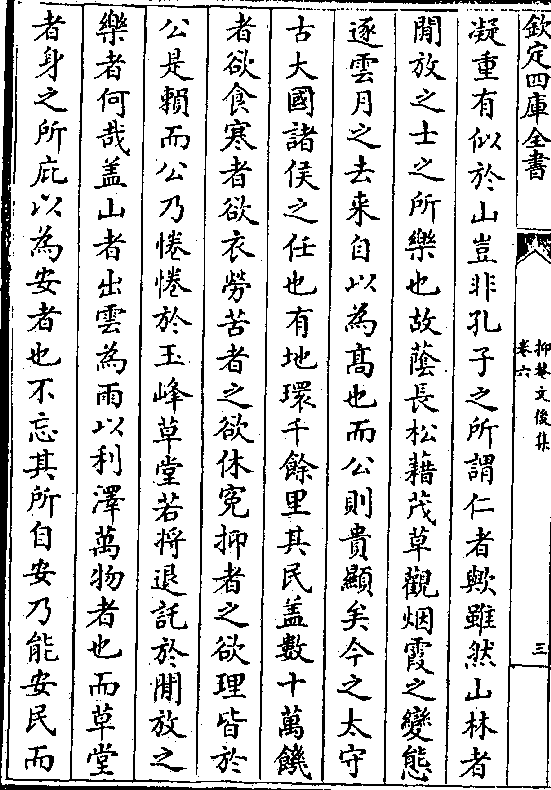 欽定四庫全書
抑菴文後集
卷六
三
凝重有似於山豈非孔子之所謂仁者歟雖然山林者
閒放之士之所樂也故蔭長松藉茂草觀烟霞之變態
逐雲月之去来自以為髙也而公則貴顯矣今之太守
古大國諸侯之任也有地環千餘里其民盖數十萬饑
者欲食寒者欲衣勞苦者之欲休寃抑者之欲理皆於
公是賴而公乃惓惓於玉峰草堂若將退託於閒放之
樂者何哉盖山者出雲為雨以利澤萬物者也而草堂
者身之所庇以為安者也不忘其所自安乃能安民而